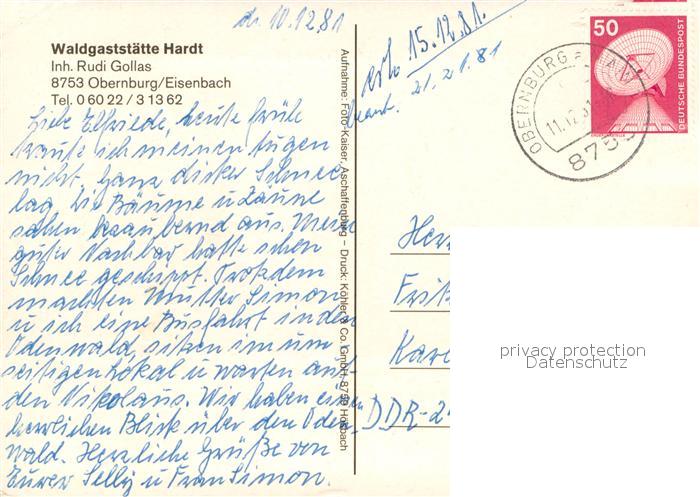 d. 10.12.81
Waldgaststätte Hardt
Inh. Rudi Gollas
8753 Obernburg/Eisenbach
Tel. 0 60 22 / 3 13 62
Liebe Elfriede, heute früh
traute ich meinen Augen
nicht. Ganz dicker Schnee
lag. Die Bäume u Zäune
sahen bezaubernd aus. Mein
guter Nachbar hatte schon
Schnee geschippt. Trotzdem
machten Mutter Simon
u ich eine Busfahrt in den
Odenwald, sitzen im um
seitigen Lokal u warten auf
den Nikolaus. Wir haben einen
herrlichen Blick über den Oden-
wald. Herzliche Grüße von
Eurer Selly u Frau Simon.
Aufnahme: Foto-Kaiser, Aschaffenburg – Druck: Köhler & Co. GmbH, 8759 Hösbach
erh. 15.12.81.
beant. 21.21.81
50
DEUTSCHE BUNDESPOST
OBERNBURG
11.12.81
875
Her
Frit
Kar
DDR-2
privacy protection
Datenschutz